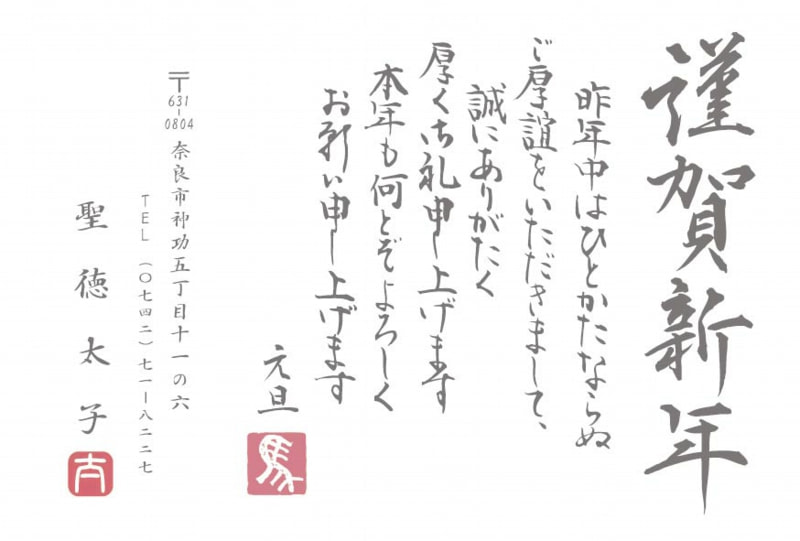 謹賀新年
昨年中はひとかたならぬ
ご厚誼をいただきまして、
誠にありがたく
厚く御礼申し上げます
本年も何とぞよろしく
お願い申し上げます
元旦
馬
〒631-0804
奈良市神功五丁目十一の六
TEL(〇七四二)七一ー八二二七
聖徳太子